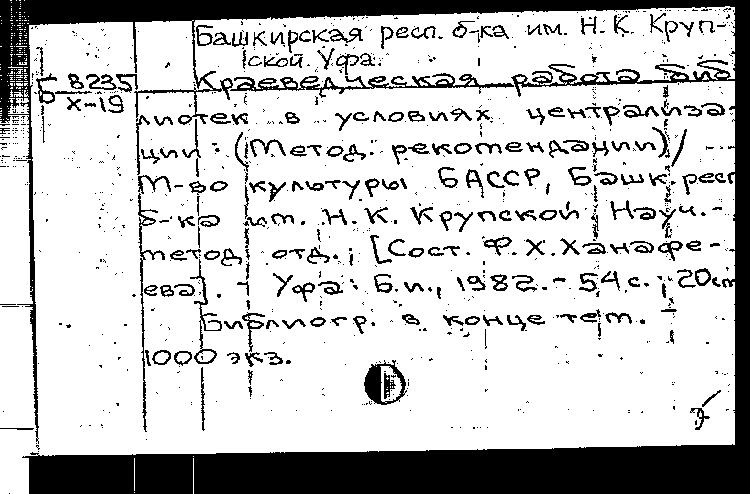 Башкирская респ. б-ка им. Н.К. Круп-
ской. Уфа.
Б 8235
Х-19
Краеведческая работа биб
лиотек в условиях централиза-
ции: (Метод. рекомендации) / ---
М-во культуры БАССР, Башк. респ
б-ка им. Н.К. Крупской. Науч.-
метод. отд.; [Сост. Ф.Х.Ханафе-
ева]. - Уфа: Б.и., 1982. - 54 с.; 20 см
Библиогр. в конце тем. -
1000 экз.